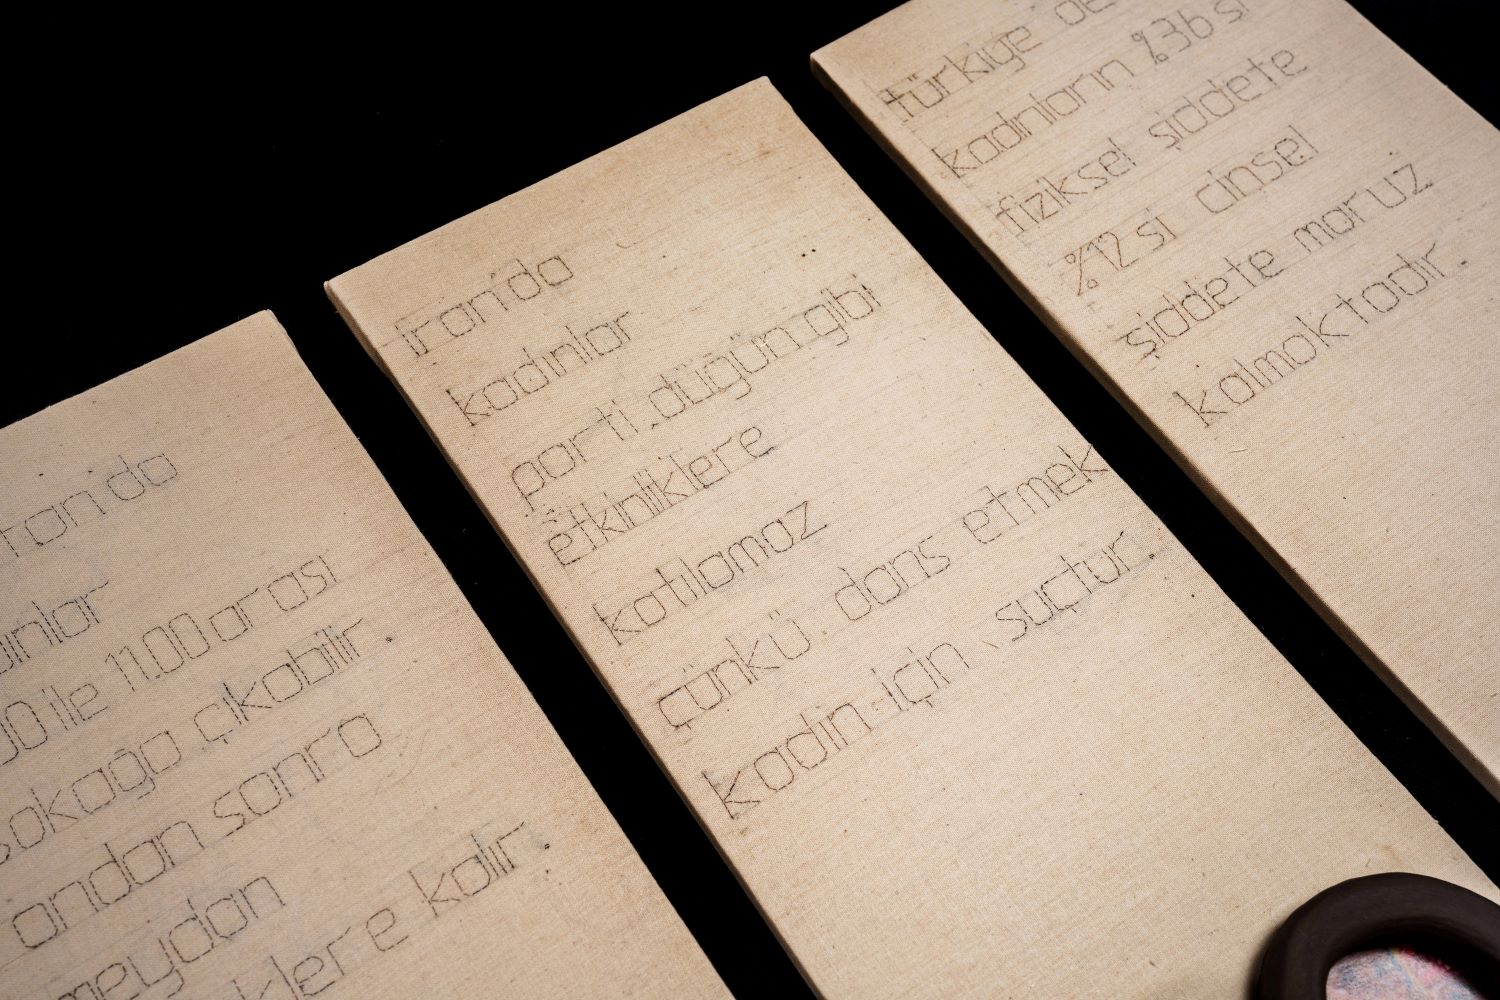 ran'da
ınlar
00 ile 11.00 arası
sokağa çıkabilir.
ondan sonra
meydan
klere kalır.
iran'da
kadınlar
parti ,düğün gibi
etkinliklere
katılamaz
çünkü dans etmek
kadın için suçtur.
türkiye de
kadınların %36 sı
fiziksel şiddete
%12 si cinsel
şiddete maruz
kalmaktadır.